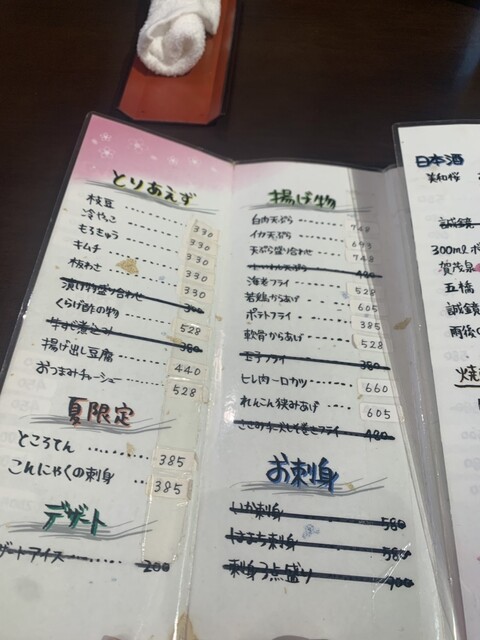 とりあえず
枝豆 330
冷やっこ 330
もろきゅう 330
キムチ 330
板わさ 330
漬け物盛り合わせ
くらげ酢の物 528
揚げ出し豆腐 440
おつまみチャーシュー 528
夏限定
ところてん 385
こんにゃくの刺身 385
デザート
ザートアイス 200
揚げ物
白肉天ぷら 748
イカ天ぷら 693
天ぷら盛り合わせ 748
海老フライ 528
若鶏からあげ 605
ポテトフライ 385
軟骨からあげ 528
玉子フライ 380
ヒレ肉一口カツ 660
れんこん挟みあげ 605
480
お刺身
いか刺身 580
刺身 580
刺身3点盛り 900
日本酒
美和桜
誠鏡
300ml
賀茂泉
五橋
誠鏡
雨後の
焼